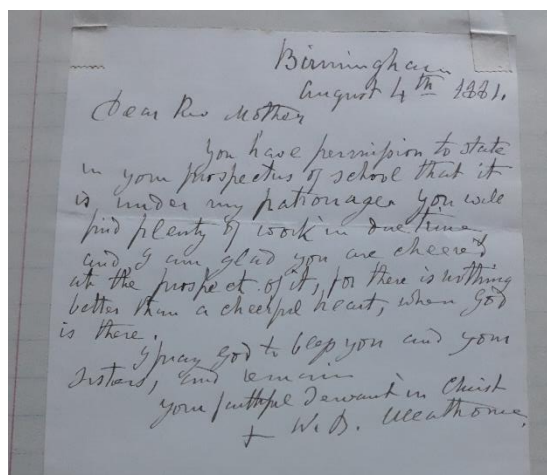 Birmingham
August 4th 1881.
Dear Rev Mother
You have permission to state
in your prospectus of school that it
is under my patronage. You will
find plenty of work in due time
and I am glad you are cheered
at the prospect of it, for there is nothing
better than a cheerful heart, when God
is there.
I pray God to bless you and your
Sisters, and remain
your faithful Servant in Christ
+ W. B. Ullathorne.